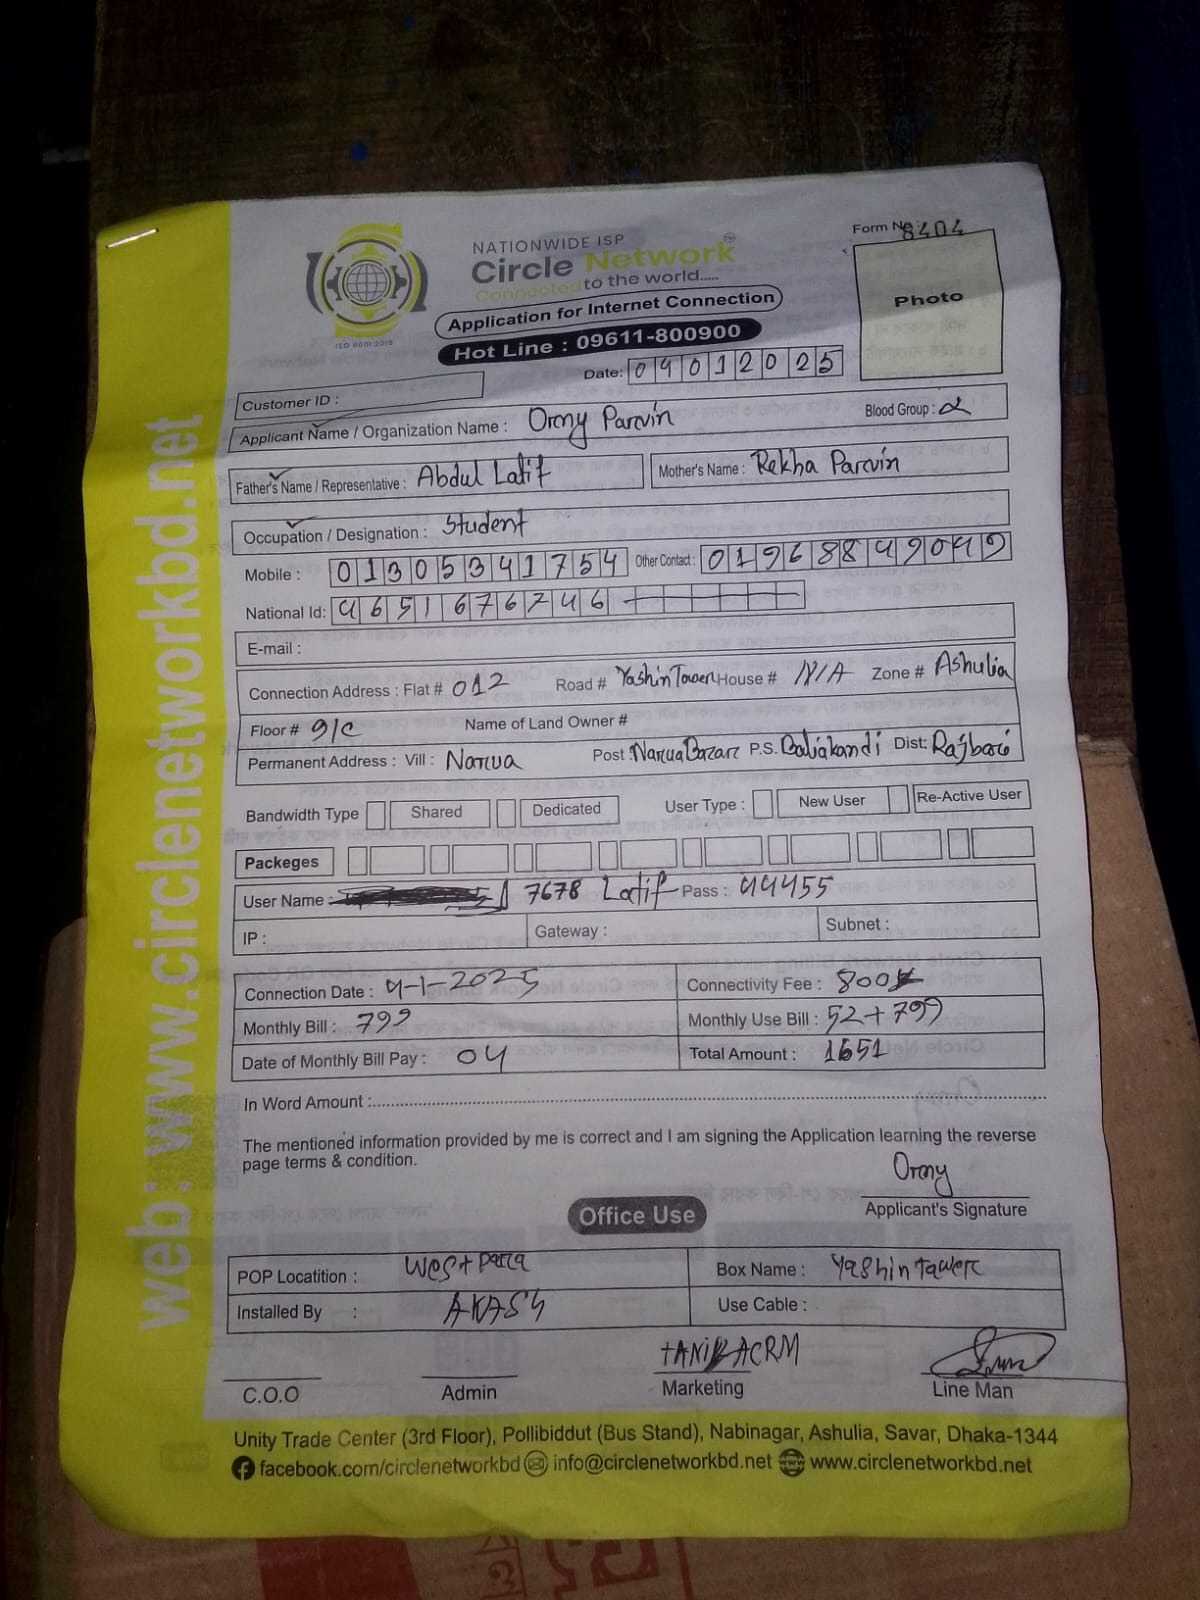 Form No 8404
NATIONWIDE ISP
Circle Network
Connected to the world.....
ISO 9001:2015
Application for Internet Connection
Hot Line : 09611-800900
Photo
Date: 04012025
Customer ID :
Applicant Name / Organization Name : Ormy Parvin Blood Group :
Father's Name / Representative : Abdul Latif Mother's Name : Rekha Parvin
Occupation / Designation : Student
Mobile : 01305341754 Other Contact : 01968849049
National Id: 4651676746
E-mail :
Connection Address : Flat # 012 Road # Yashin Tower House # N/A Zone # Ashulia
Floor # 9/C Name of Land Owner #
Permanent Address : Vill : Narua Post : Narua Bazar P.S. Baliakandi Dist: Rajbari
Bandwidth Type Shared Dedicated User Type : New User Re-Active User
Packeges
User Name : 7678 Latif Pass : 44455
IP : Gateway : Subnet :
Connection Date : 4-1-2025 Connectivity Fee : 800
Monthly Bill : 799 Monthly Use Bill : 52+799
Date of Monthly Bill Pay : 04 Total Amount : 1651
In Word Amount :
The mentioned information provided by me is correct and I am signing the Application learning the reverse
page terms & condition.
Ormy
Applicant's Signature
Office Use
POP Locatition : West para Box Name : Yashin tawer
Installed By : AKASH Use Cable :
C.O.O Admin Marketing Line Man
Unity Trade Center (3rd Floor), Pollibiddut (Bus Stand), Nabinagar, Ashulia, Savar, Dhaka-1344
facebook.com/circlenetworkbd info@circlenetworkbd.net www.circlenetworkbd.net
web: www.circlenetworkbd.net